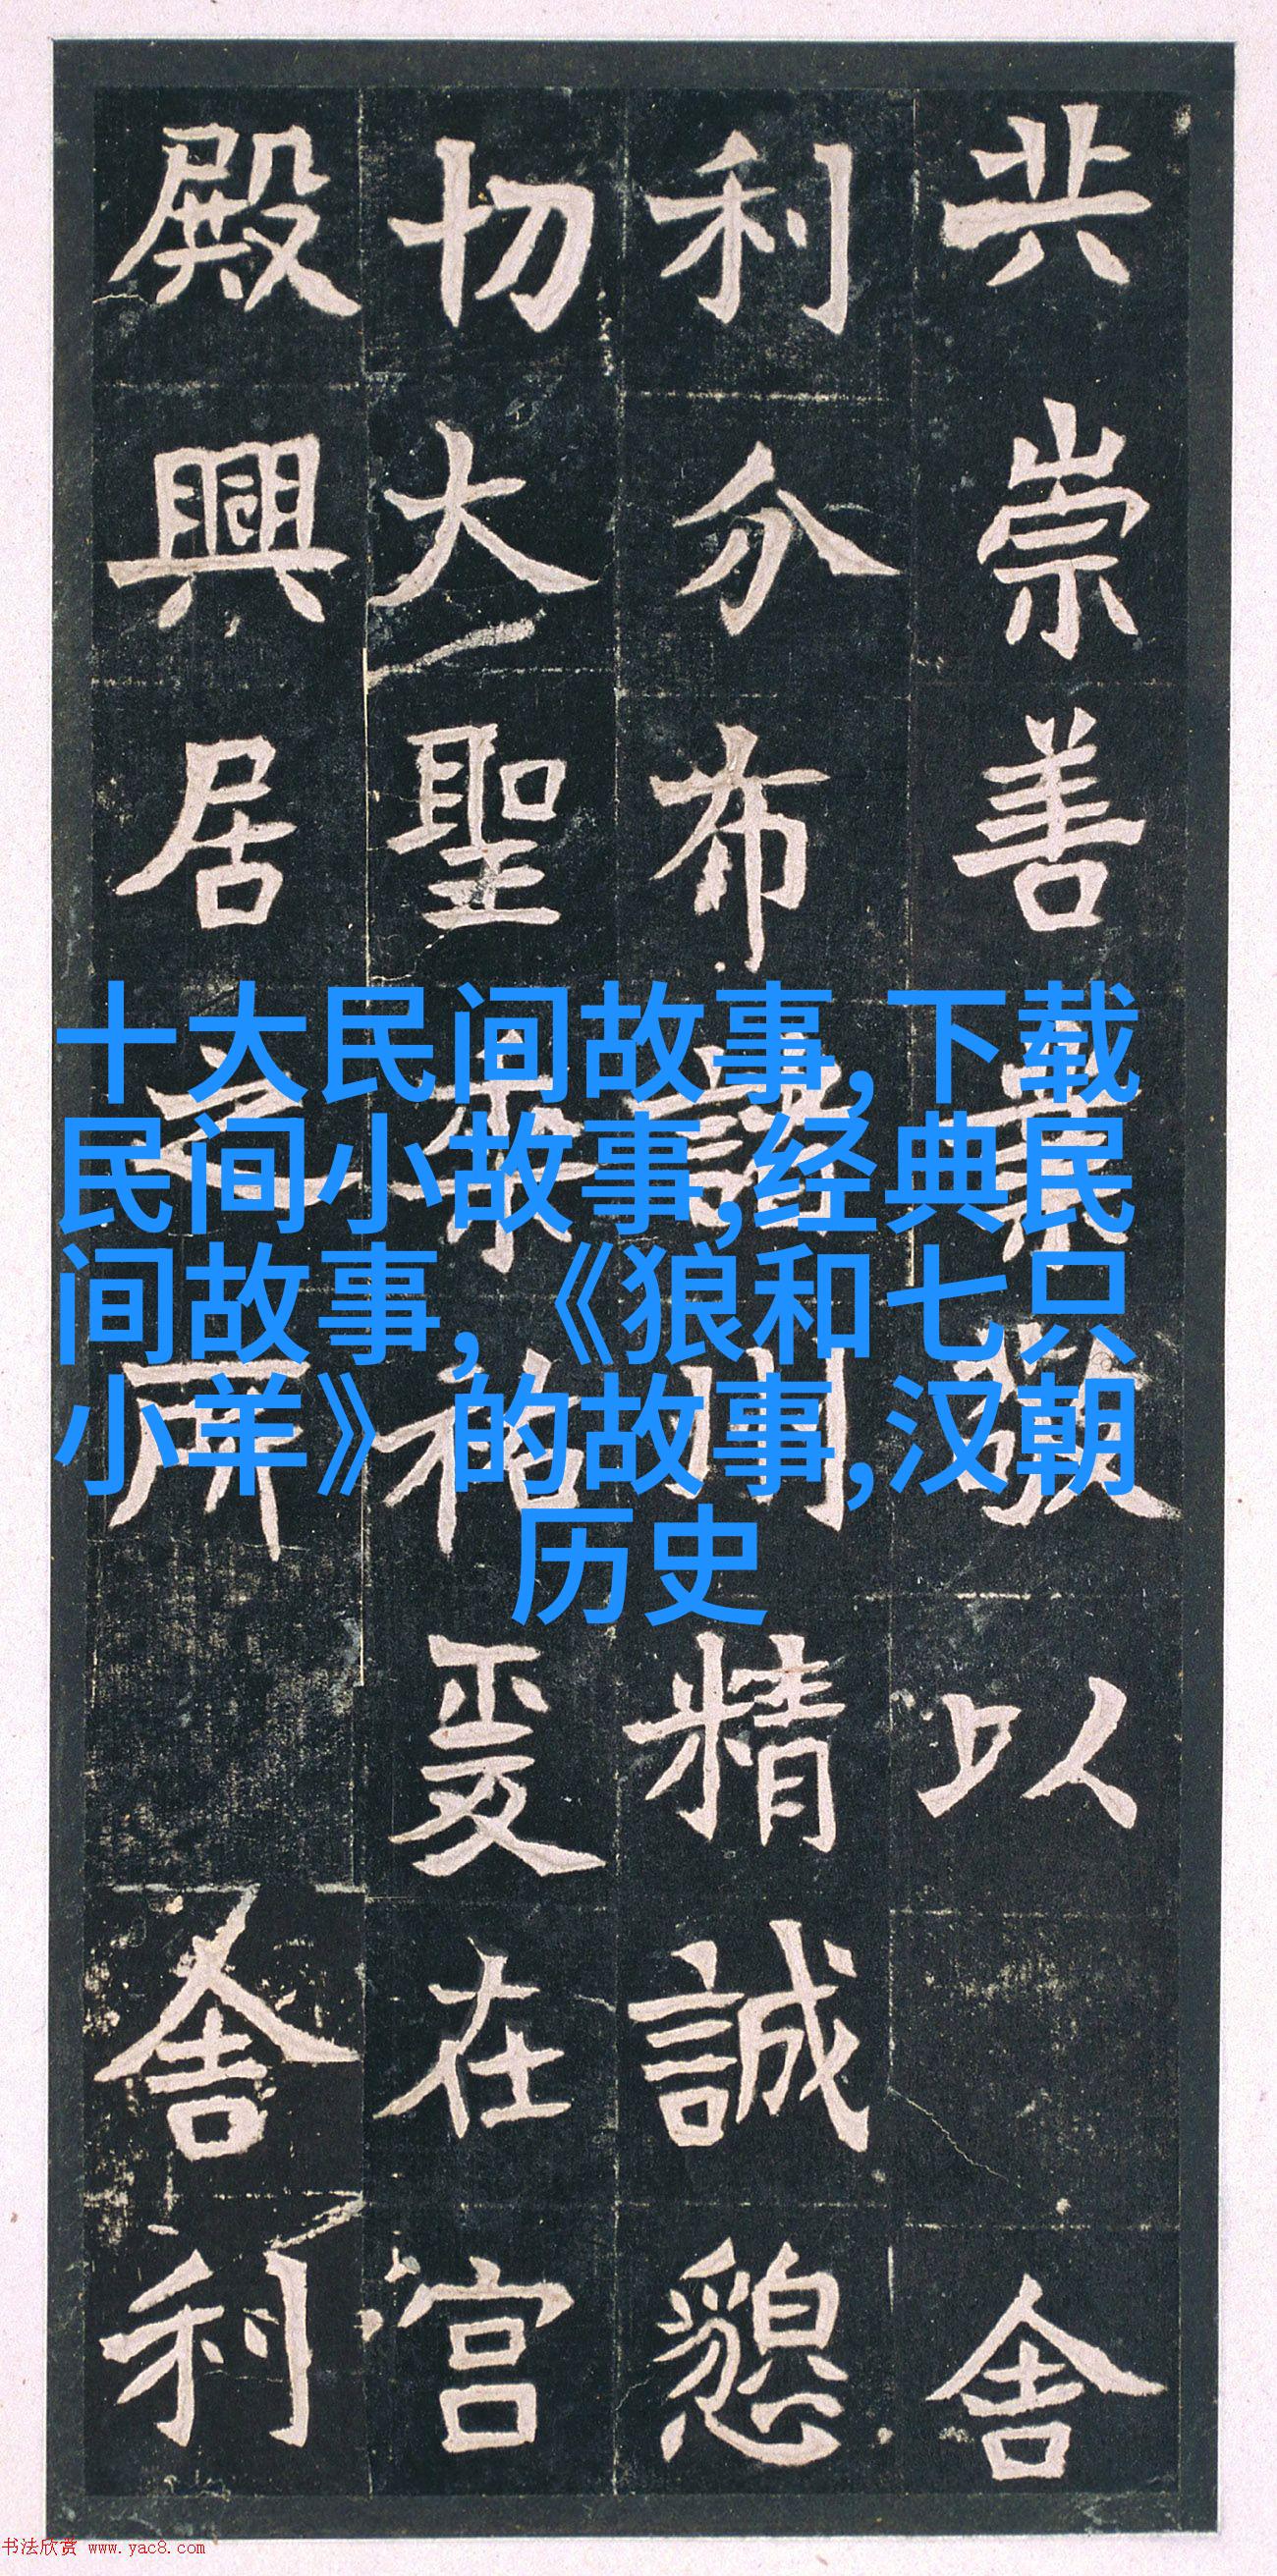 共崇善業敬以舍
利分布諸州精誠懇
切大聖垂祐爰在宮
殿興居之所舍利
十大民间故事,下载
民间小故事,经典民
间故事,《狼和七只
小羊》的故事,汉朝
历史
书法欣赏 www.yac8.com